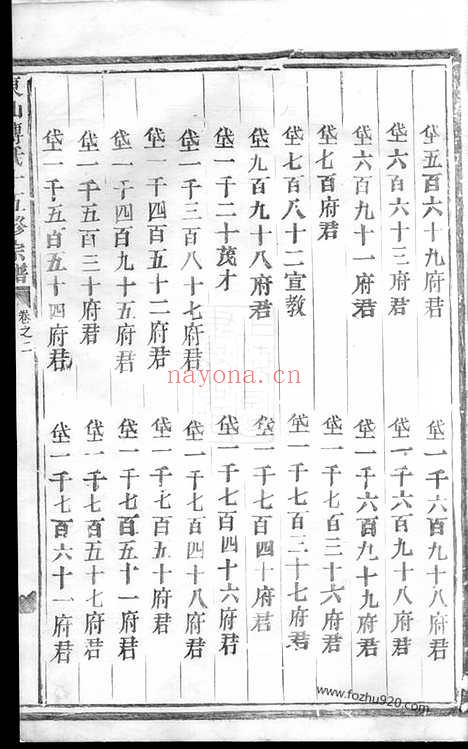 垈五百六十九府君
垈六百六十三府君
垈六百九十一府君
垈七百府君
垈七百八十二宣教
垈九百九十八府君
垈一千二十茂才
垈一千三百八十七府君
垈一千四百五十二府君
垈一千四百九十五府君
垈一千五百三十府君
垈一千五百五十四府君
垈一千六百九十八府君
垈一千六百九十八府君
垈一千六百九十九府君
垈一千七百三十六府君
垈一千七百三十七府君
垈一千七百四十府君
垈一千七百四十六府君
垈一千七百四十八府君
垈一千七百五十府君
垈一千七百五十一府君
垈一千七百五十七府君
垈一千七百六十一府君
東山傅氏十五修宗譜
卷之二
nayona.cn
www.fozhu920.com